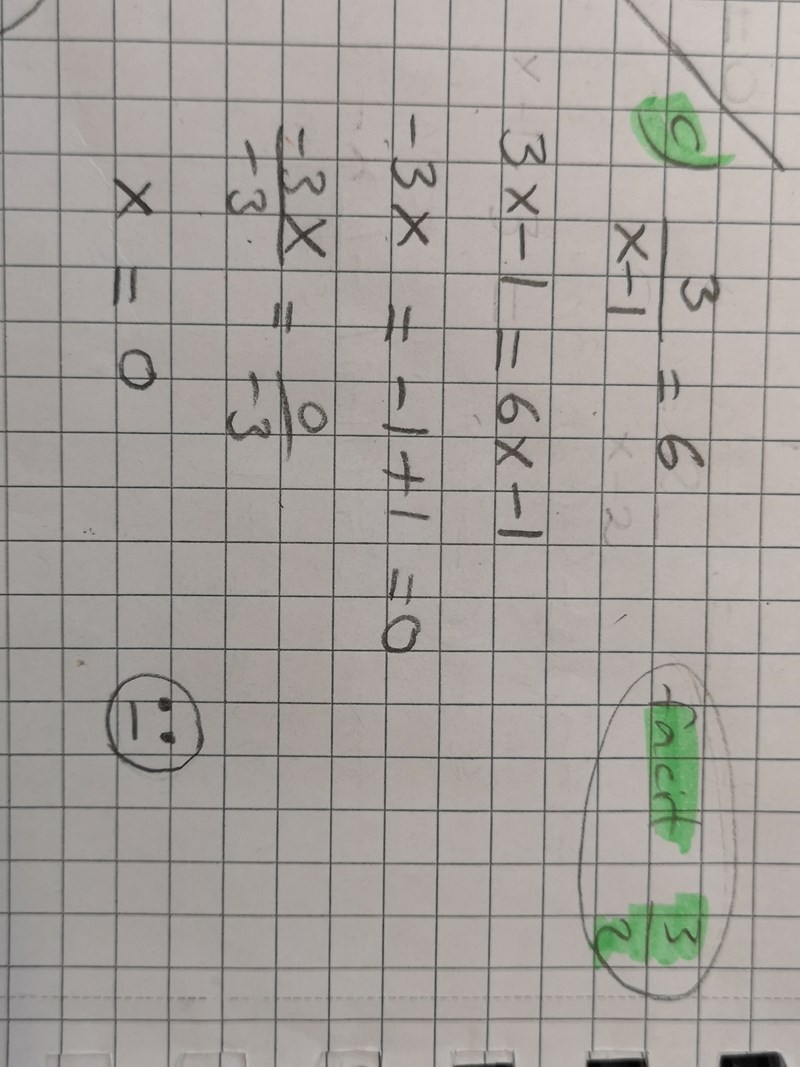 c) 3/(x-1) = 6
facit 3/2
3x-1 = 6x-1
-3x = -1+1 = 0
-3x/-3 = 0/-3
x = 0